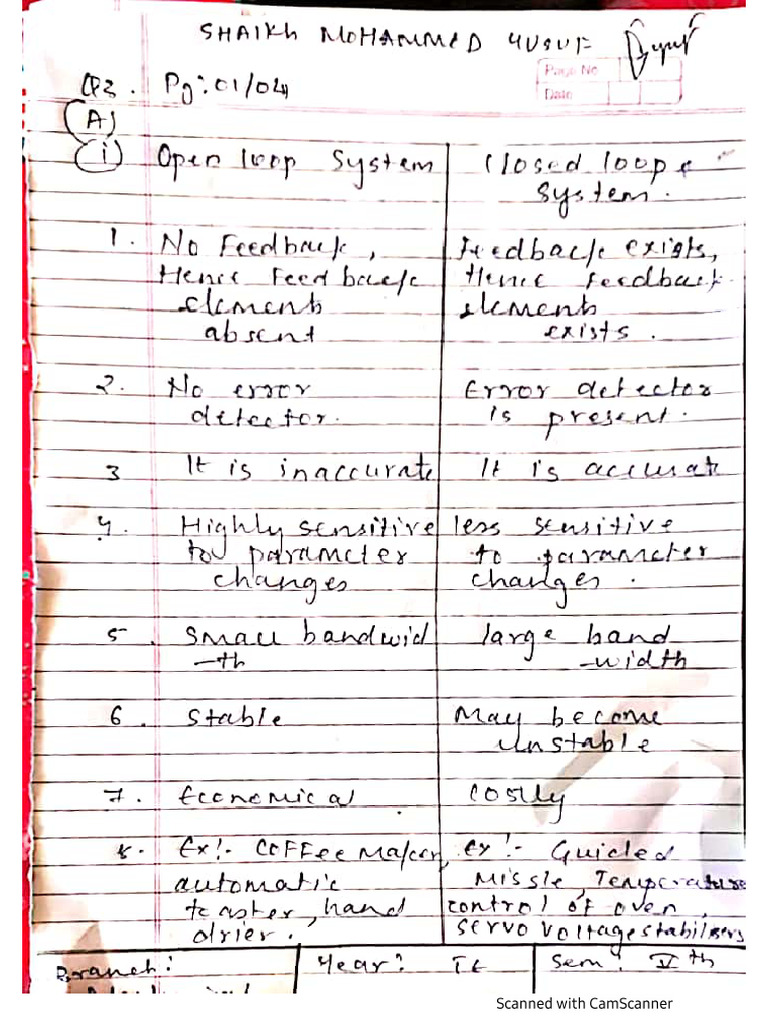 SHAIKH MOHAMMED YUSUF
Page No
Date
Q3. Pg:01/04
(A)
(i) Open loop system | Closed loop system.
1. No Feedback, Hence Feedback elements absent | Feedback exists, Hence Feedback elements exists.
2. No error detector. | Error detector is present.
3 It is inaccurate | It is accurate
4. Highly sensitive to parameter changes | less sensitive to parameter changes.
5. Small bandwid-th | large band-width
6. Stable | May become unstable
7. Economical | costly
8. Ex:- Coffee Maker, automatic toaster, hand drier. | ex:- Guided Missle, Temperature control of oven, servo voltage stabilisers
Branch: | Year: TE | Sem: Vth
Scanned with CamScanner